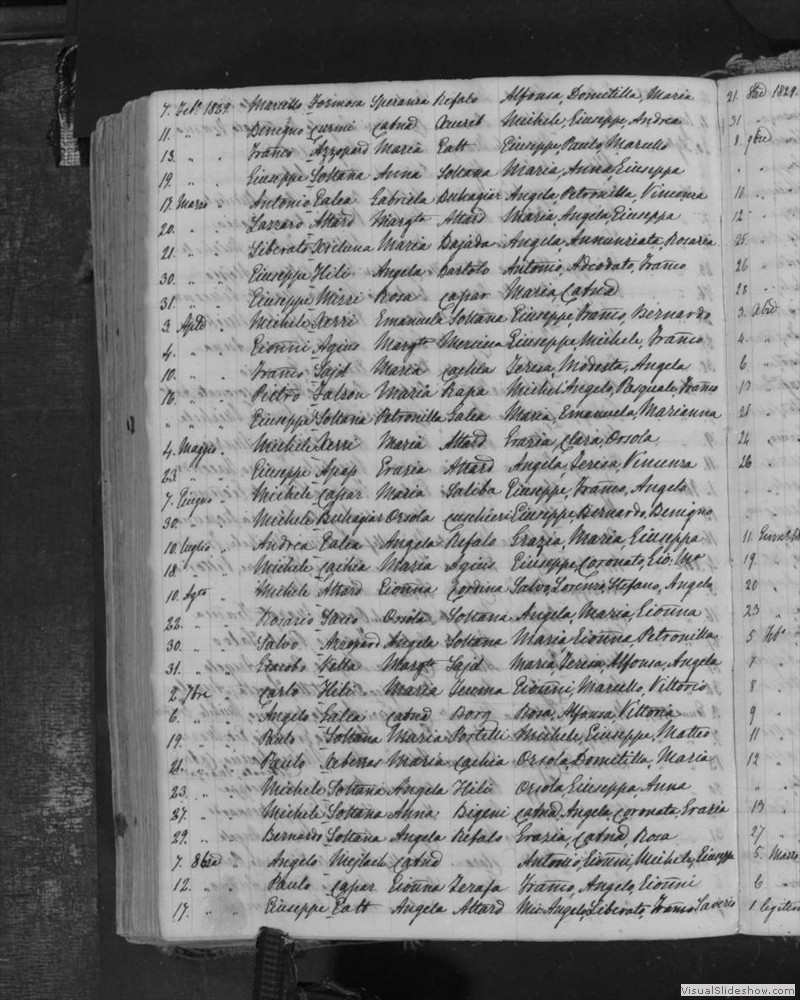 7. Feb. 1829. Marcello Formosa Speranza Refalo Alfonsa, Domitilla, Maria
11. " " Benigno Curmi Catna Xuerib Michele, Giuseppe, Andrea
13. " " Franco Azzopard Maria Gatt Giuseppe, Paulo, Marcello
19. " " Giuseppe Soltana Anna Soltana Maria, Anna, Giuseppa
17. Marzo " Antonio Galea Gabriela Buhagiar Angela, Petronilla, Vincenza
20. " " Lazzaro Attard Margta Attard Maria, Angela, Giuseppa
21. " " Liberato Xicluna Maria Bajada Angela, Annunziata, Rosaria
30. " " Giuseppe Hili Angela Bartolo Antonio, Adeodato, Franco
31. " " Giuseppe Mizzi Rosa Capar Maria, Catna
3. Aple " Michele Xerri Emanuela Soltana Giuseppe, Franco, Bernardo
4. " " Gionni Agius Margta Mercieca Giuseppe, Michele, Franco
10. " " Franco Sajd Maria Cachia Teresa, Modesta, Angela
16. " " Pietro Falzon Maria Rapa Michel'Angelo, Pasquale, Franco
" " " Giuseppe Soltana Petronilla Galea Maria, Emanuela, Marianna
4. Maggio " Michele Xerri Maria Attard Grazia, Clara, Orsola
23. " " Giuseppe Apap Grazia Attard Angela, Teresa, Vincenza
7. Giugno " Michele Capar Maria Saliba Giuseppe, Franco, Angelo
30. " " Michele Buhagiar Orsola Cuschieri Giuseppe, Bernardo, Benigno
10. Luglio " Andrea Galea Angela Refalo Grazia, Maria, Giuseppa
18. " " Michele Cachia Maria Agius Giuseppe, Coronato, Gio: Ma
10. Agto " Michele Attard Gionna Cordina Salvo, Lorenzo, Stefano, Angelo
22. " " Rosario Saco Orsola Soltana Angela, Maria, Gionna
30. " " Salvo Azzopard Angela Soltana Maria, Gionna, Petronilla
31. " " Giacobo Vella Margta Sajd Maria, Teresa, Alfonsa, Angela
2. 7bre " Carlo Hili Maria Gionni, Marcello, Vittorio
6. " " Angelo Galea Catna Borg Rosa, Alfonsa, Vittoria
19. " " Paulo Soltana Maria Portelli Michele, Giuseppe, Matteo
21. " " Paulo Xeberras Maria Cachia Orsola, Domitilla, Maria
23. " " Michele Soltana Angela Hili Orsola, Giuseppa, Anna
27. " " Michele Soltana Anna Bigeni Catna, Angela, Coronata, Grazia
29. " " Bernardo Soltana Angela Refalo Grazia, Catna, Rosa
7. 8bre " Angelo Mejlach Catna Antonio, Gionni, Michele, Giuseppe
12. " " Paulo Capar Gionna Zerafa Franco, Angelo, Gionni
17. " " Giuseppe Gatt Angela Attard Mic'Angelo, Liberato, Franco Saverio
21. 8bre 1829.
31 "
8. 9bre
" "
10 "
12 "
25 "
26 "
28 "
3. Xbre
4 "
6 "
17 "
21 "
24 "
26 "
" "
" "
11.
19 "
20 "
23 "
5 Feb.
7 "
8 "
9 "
11 "
12 "
" "
13 "
27 "
5. Marzo
6 "
VisualSlideshow.com